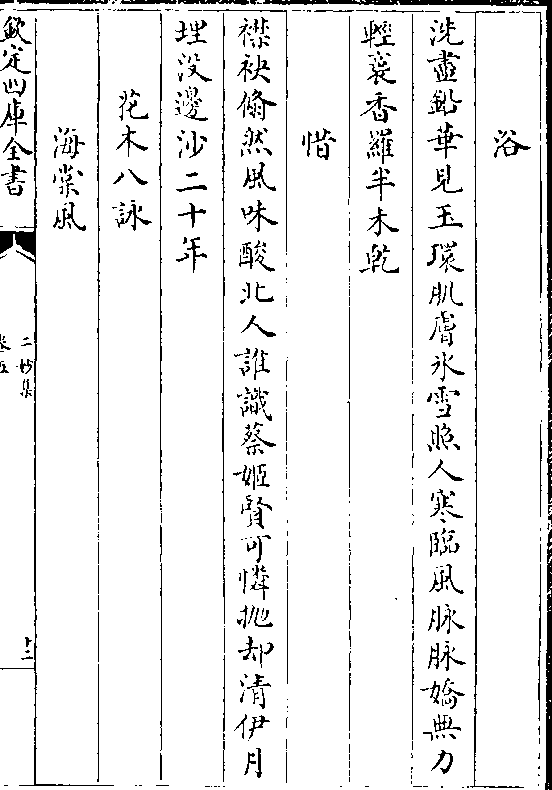 浴
洗盡鉛華見玉環肌膚氷雪照人寒臨風脉脉嬌無力
輕裛香羅半未乾
惜
襟袂翛然風味酸北人誰識蔡姬賢可憐抛却清伊月
埋没邊沙二十年
花木八詠
海棠風
欽定四庫全書
二妙集
卷五
十二